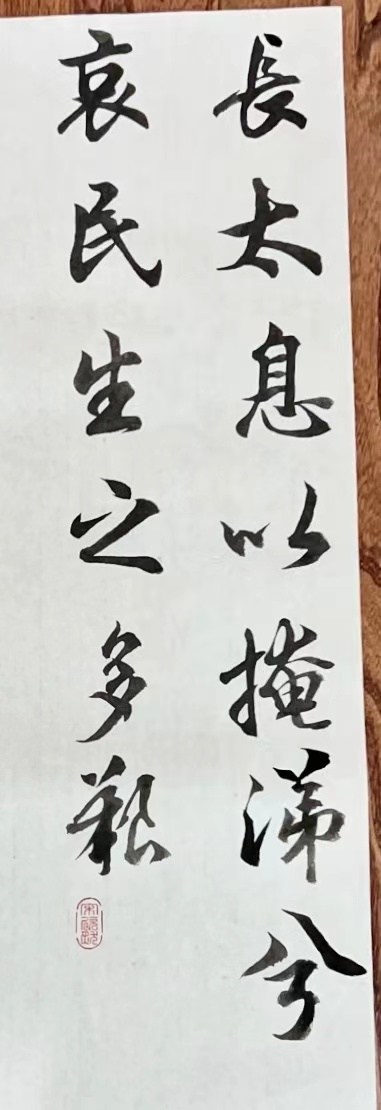 長太息以掩涕兮
哀民生之多艱